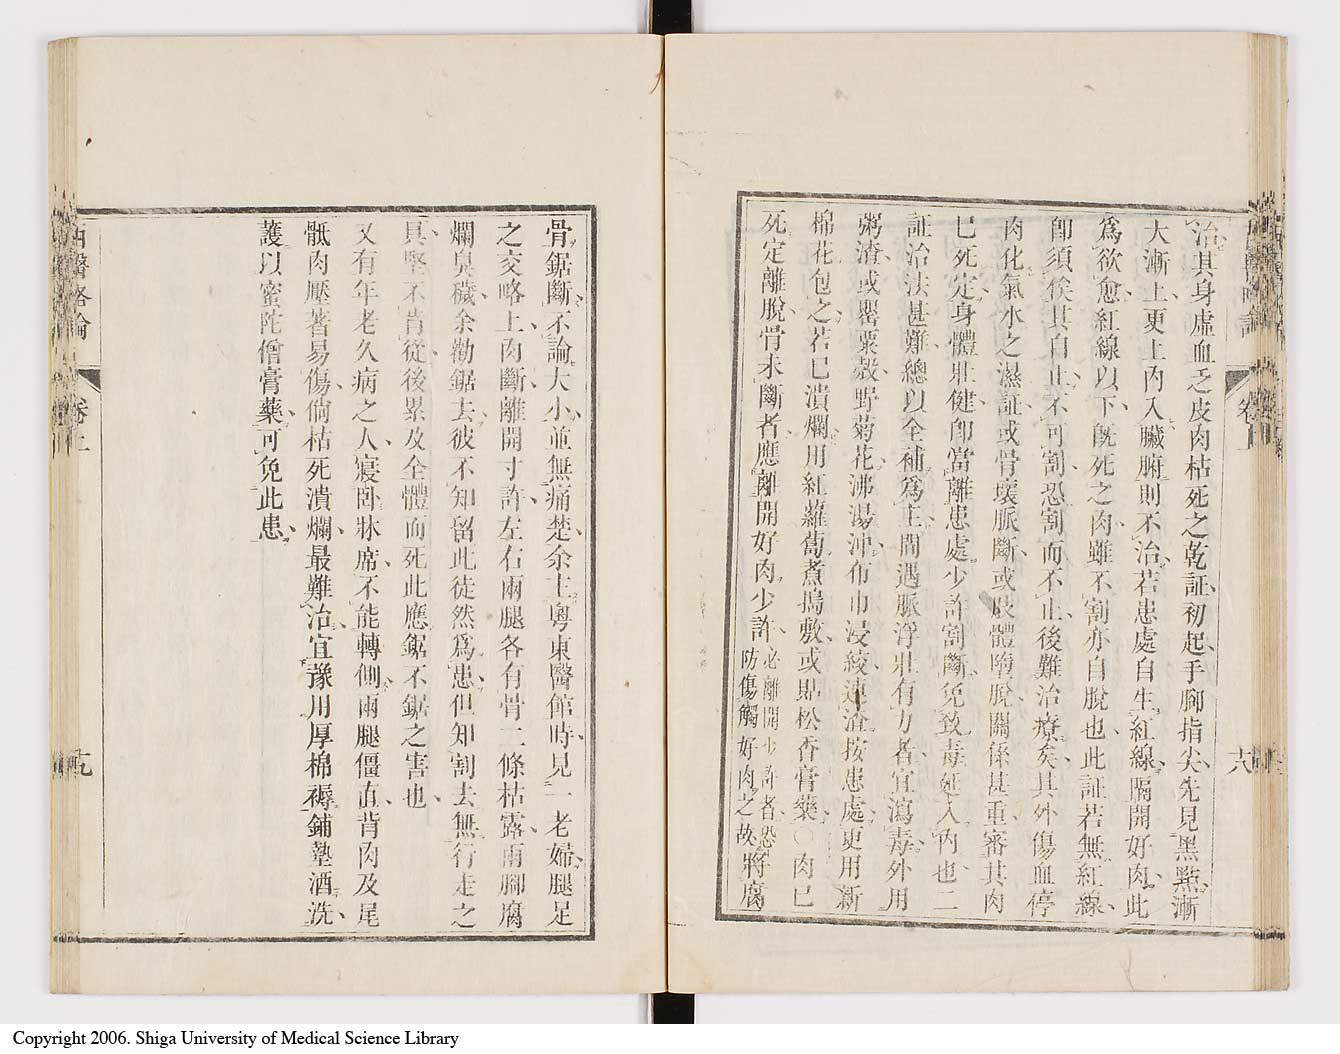 治其身虛血乏皮肉枯死之乾証初起手腳指尖先見黑點漸
大漸上更上內入臟腑則不治若患處自生紅線隔開好肉此
爲欲愈紅線以下旣死之肉雖不割亦自脫也此証若無紅線
卽須俟其自止不可割恐割而不止後難治療矣其外傷血停
肉化氣水之濕証或骨壞脈斷或肢體墮脫關係甚重審其肉
已死定身體壯健卽當離患處少許割斷免致毒延入內也二
証治法甚難總以全補爲主間遇脈浮壯有力者宜瀉毒外用
粥渣或罌粟殼野菊花沸湯沖布巾浸絞連渣按患處更用新
棉花包之若已潰爛用紅蘿蔔煮搗敷或貼松香膏藥〇肉已
死定離脫骨未斷者應離開好肉少許必離開少許者恐防傷觸好肉之故將腐
卷上
十八
骨鋸斷不論大小並無痛楚余主粵東醫館時見一老婦腿足
之交略上肉斷離開寸許左右兩腿各有骨二條枯露兩腳腐
爛臭穢余勸鋸去彼不知留此徒然爲患但知割去無行走之
具堅不肯從後累及全體而死此應鋸不鋸之害也
又有年老久病之人寢臥牀席不能轉側兩腿僵直背肉及尾
骶肉壓著易傷倘枯死潰爛最難治宜豫用厚棉褥鋪墊酒洗
護以蜜陀僧膏藥可免此患
西醫略論
卷上
十九
Copyright 2006. Shiga University of Medical Science Library